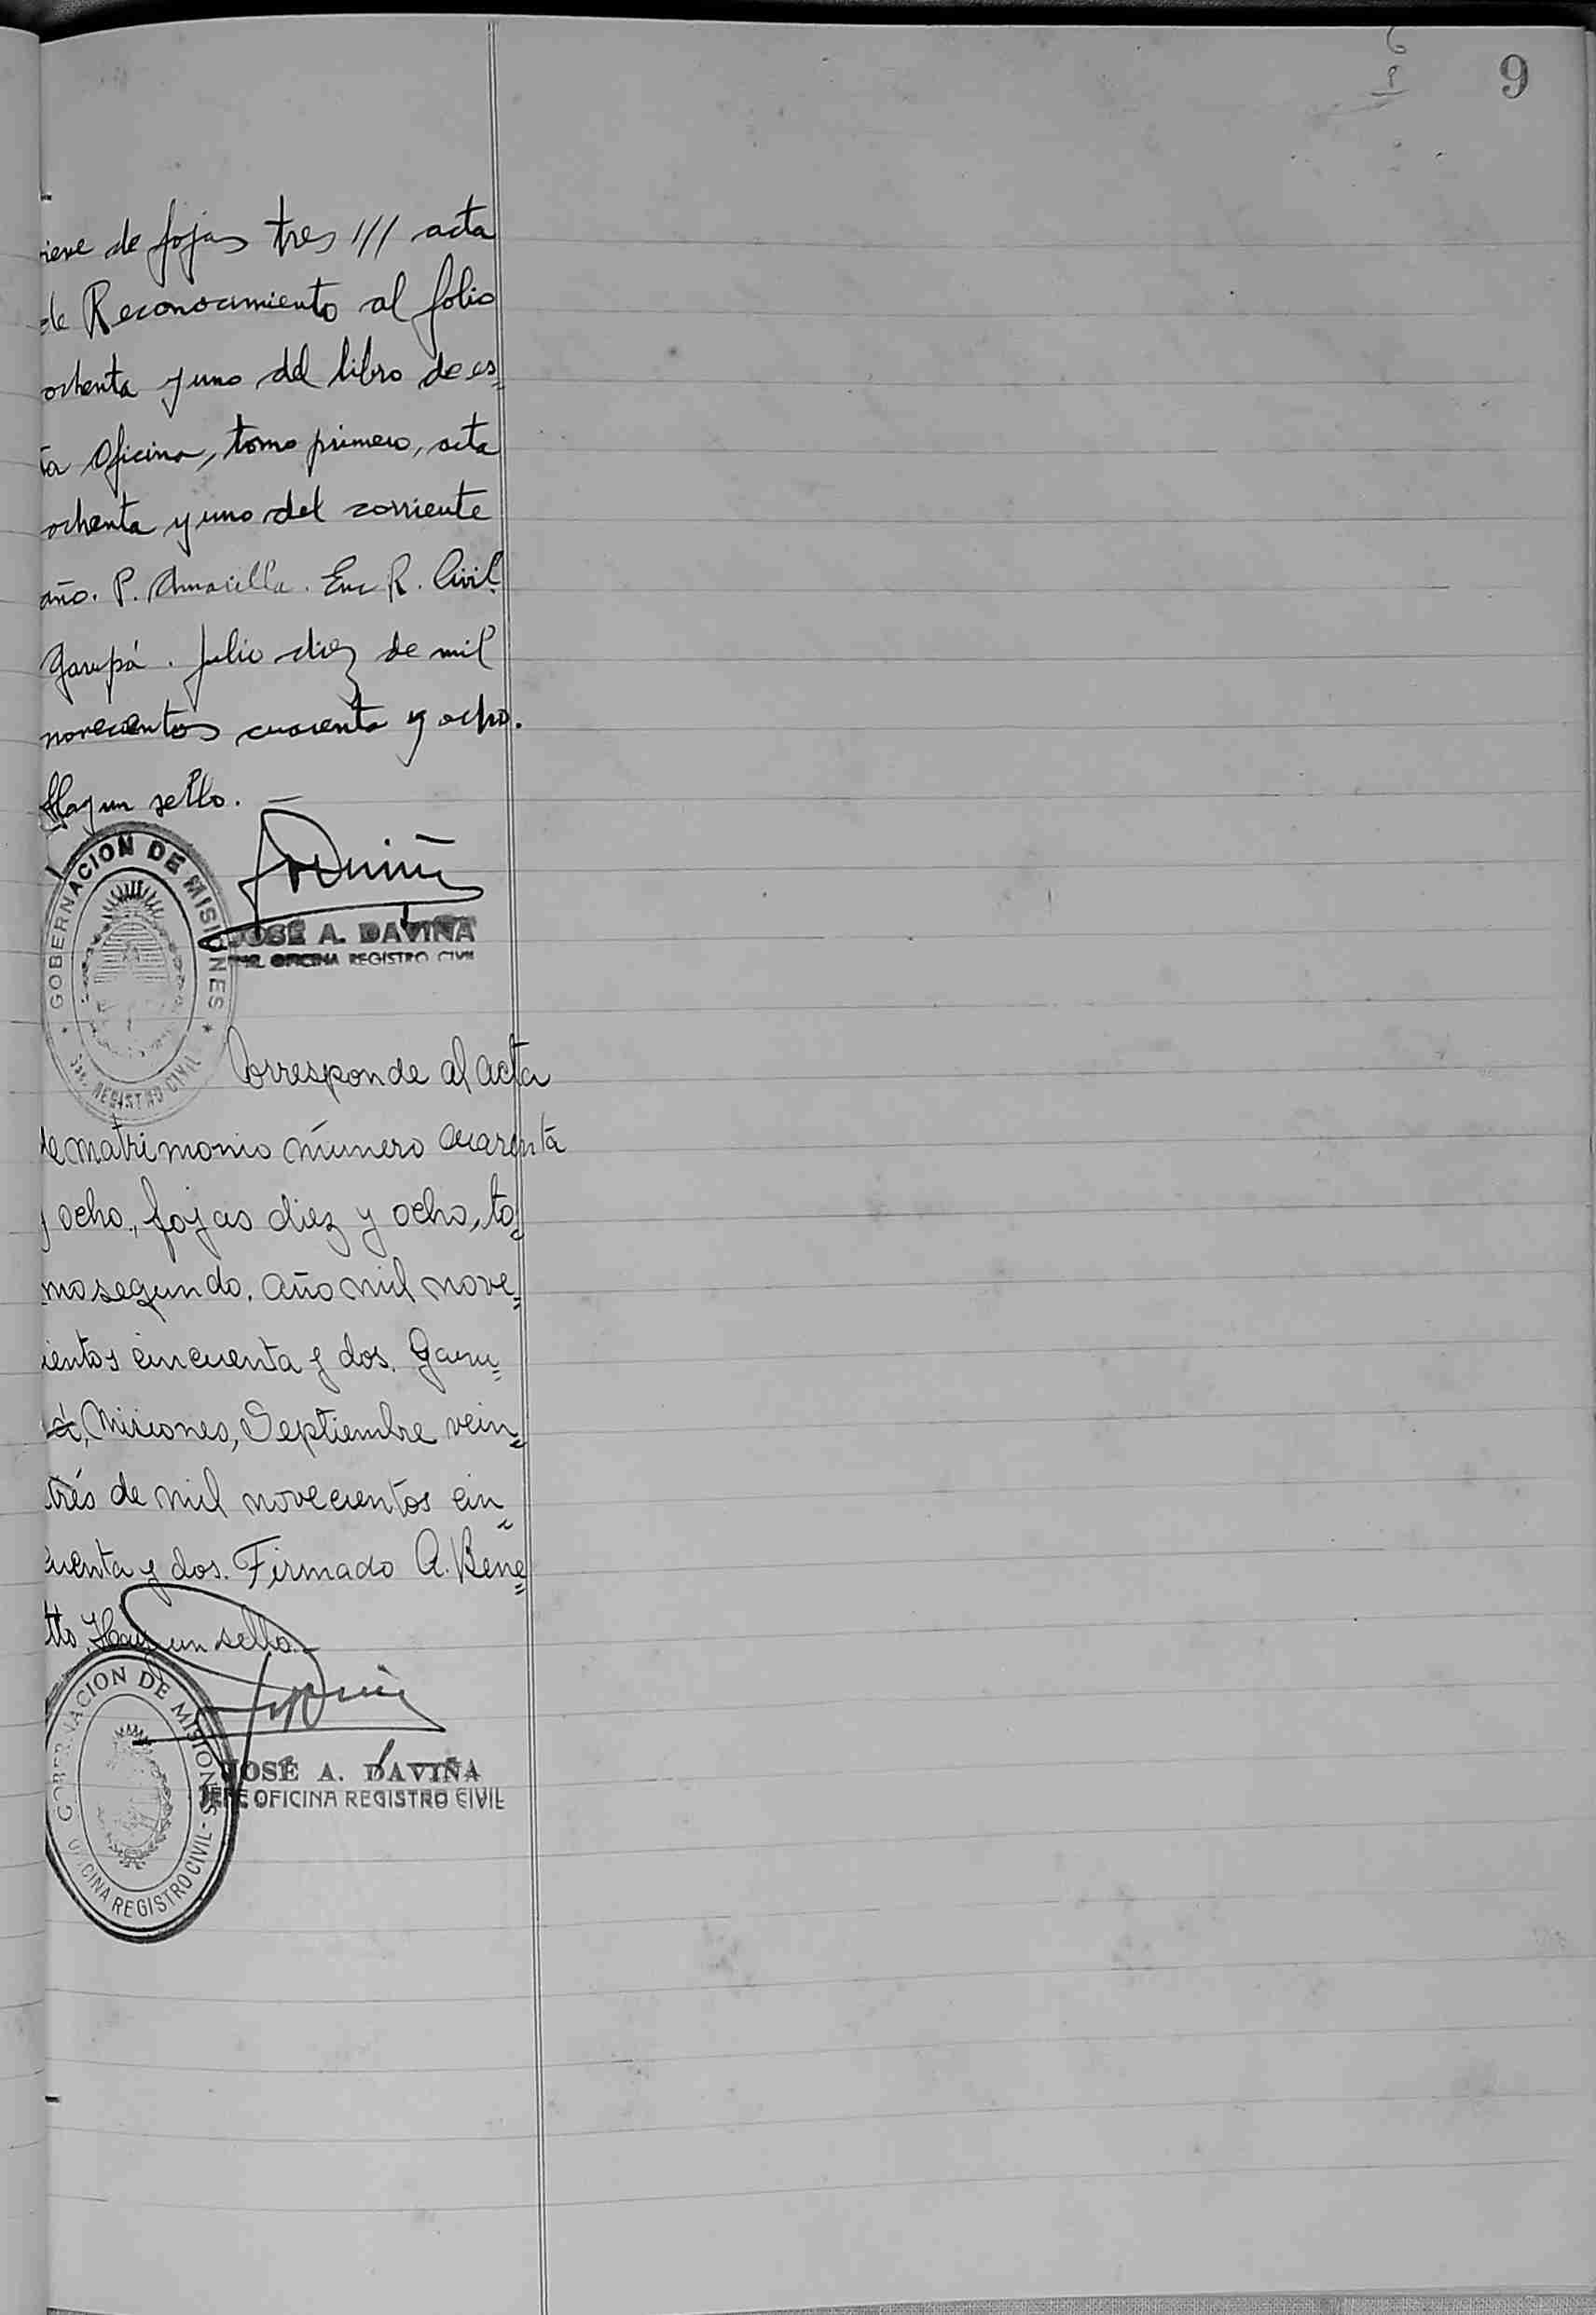 9
iene de fojas tres /// acta
de Reconocimiento al folio
ochenta y uno del libro de es=
ta Oficina, tomo primero, acta
ochenta y uno del corriente
año. P. Amarilla. Enc R. Civil.
Garupá. Julio diez de mil
novecientos cuarenta y ocho.
Hay un sello. —
GOBERNACION DE MISIONES
REGISTRO CIVIL
JOSÉ A. DAVIÑA
OFICINA REGISTRO CIVIL
Corresponde al acta
de matrimonio número cuarenta
y ocho, fojas diez y ocho, to=
mo segundo. Año mil nove=
ientos cincuenta y dos. Garu=
á, Misiones, Septiembre vein=
trés de mil novecientos cin=
cuenta y dos. Firmado A. Bene=
tto. Hay un sello.—
GOBERNACION DE MISIONES
OFICINA REGISTRO CIVIL -
JOSÉ A. DAVIÑA
JEFE OFICINA REGISTRO CIVIL